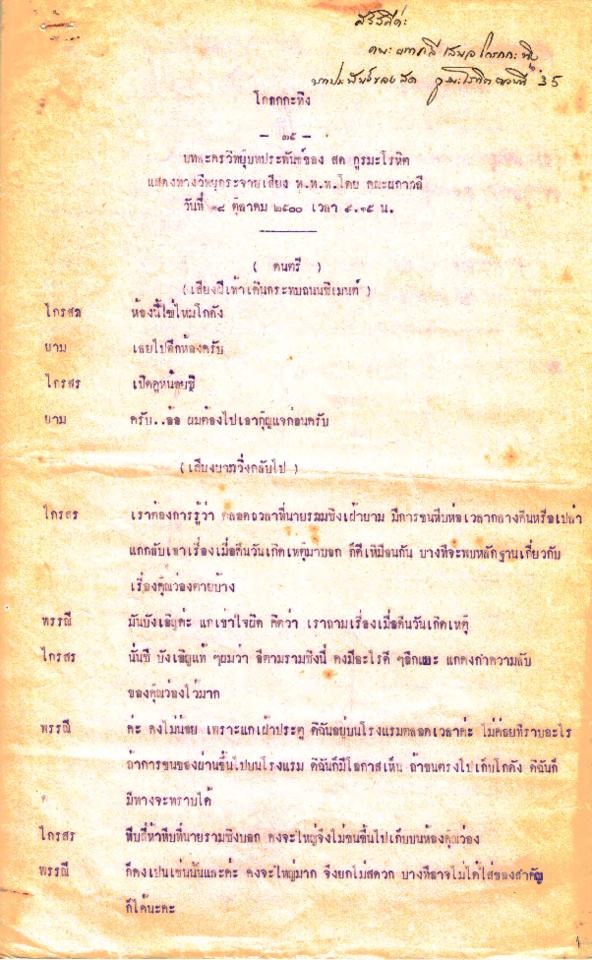 สวัสดีค่ะ
คณะผกาวลี เสนอ โกลกกะทิง
บทประพันธ์ของ สด กูรมะโรหิต ตอนที่ 35
โกลกกะทิง
- ๓๕ -
บทละครวิทยุบทประพันธ์ของ สด กูรมะโรหิต
แสดงทางวิทยุกระจายเสียง ท.ท.ท. โดย คณะผกาวลี
วันที่ ๑๘ ตุลาคม ๒๕๐๐ เวลา ๕.๑๕ น.
( ดนตรี )
(เสียงฝีเท้าเดินกระทบถนนซิเมนต์)
ไกรสร ห้องนี้ใช่ไหมโกดัง
ยาม เลยไปอีกห้องครับ
ไกรสร เปิดดูหน่อยซี
ยาม ครับ..อ้อ ผมต้องไปเอากุญแจก่อนครับ
(เสียงยามวิ่งกลับไป)
ไกรสร เราต้องการรู้ว่า ตลอดเวลาที่นายรามซิงเฝ้ายาม มีการขนหีบห่อเวลากลางคืนหรือเปล่า
แกกลับเอาเรื่องเมื่อคืนวันเกิดเหตุมาบอก ก็ดีเหมือนกัน บางทีจะพบหลักฐานเกี่ยวกับ
เรื่องคุณว่องตายบ้าง
พรรณี มันบังเอิญค่ะ แกเข้าใจผิด คิดว่า เราถามเรื่องเมื่อคืนวันเกิดเหตุ
ไกรสร นั่นซี บังเอิญแท้ ๆผมว่า อีตารามซิงนี้ คงมีอะไรดี ๆอีกเยอะ แกคงกำความลับ
ของคุณว่องไว้มาก
พรรณี ค่ะ คงไม่น้อย เพราะแกเฝ้าประตู ดิฉันอยู่บนโรงแรมตลอดเวลาค่ะ ไม่ค่อยทราบอะไร
ถ้าการขนของผ่านขึ้นไปบนโรงแรม ดิฉันก็มีโอกาสเห็น ถ้าขนตรงไปเก็บโกดัง ดิฉันก็
มีทางจะทราบได้
ไกรสร หีบสี่ห้าหีบที่นายรามซิงบอก คงจะใหญ่จึงไม่ขนขึ้นไปเก็บบนห้องคุณว่อง
พรรณี ก็คงเป็นเช่นนั้นแหละค่ะ คงจะใหญ่มาก จึงยกไม่สดวก บางทีอาจไม่ได้ใส่ของสำคัญ
ก็ได้นะคะ
1